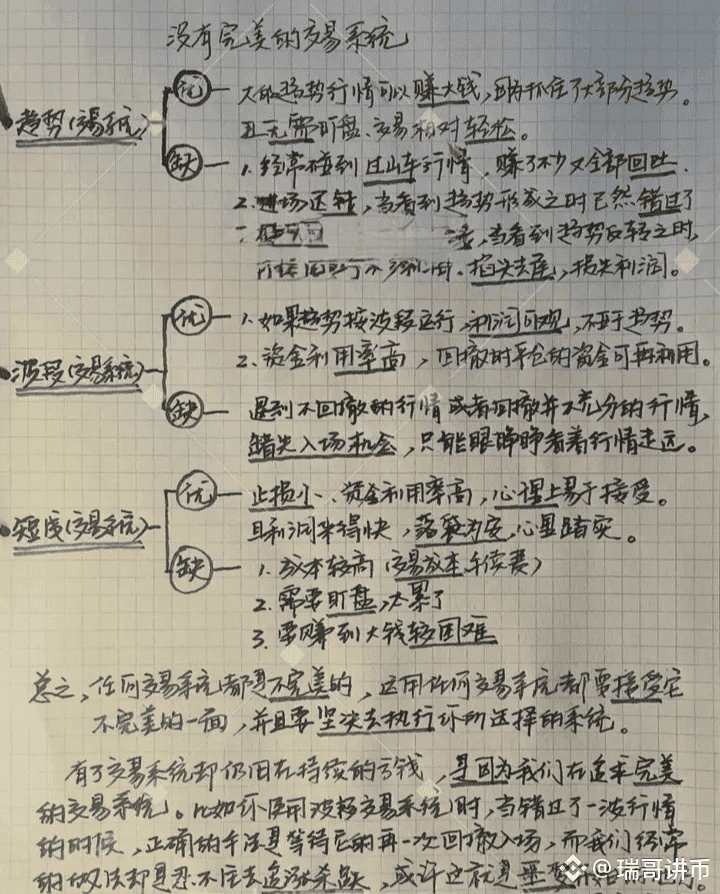 没有完美的交易系统
趋势(交易系统)
优
大的趋势行情可以赚大钱，因为抓住了大部分趋势。
且无需盯盘、交易相对轻松。
缺
1. 经常碰到过山车行情，赚了不少又全部回吐.
2. 进场迟钝，当看到趋势形成之时已然错过了
，当看到趋势反转之时，
掐头去尾，损失利润。
波段(交易系统)
优
1. 如果趋势按波段运行，利润可观，不亚于趋势。
2. 资金利用率高，回撤时平仓的资金可再利用。
缺
遇到不回撤的行情或者回撤并不充分的行情，
错失入场机会，只能眼睁睁看着行情走远。
短线(交易系统)
优
止损小、资金利用率高，心理上易于接受。
且利润来得快，落袋为安，心里踏实。
缺
1. 成本较高(交易成本，手续费)
2. 需要盯盘，太累了
3. 要赚到大钱较困难
总之，任何交易系统都是不完美的，运用任何交易系统都要接受它
不完美的一面，并且要坚决去执行你所选择的系统。
有了交易系统却仍旧在持续的亏钱，是因为我们在追求完美
的交易系统。比如你使用波段交易系统时，当错过了一波行情
的时候，正确的手法是等待它的再一次回撤入场，而我们经常
的做法却是忍不住去追涨杀跌，或许这就是
@瑞哥讲币